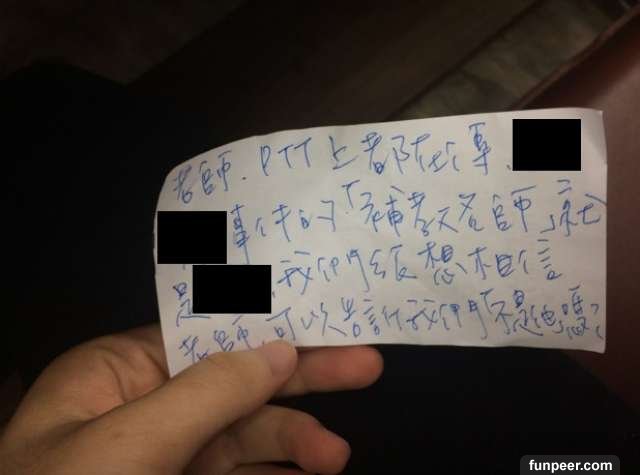 老師.PTT上都在傳
事件的「補教名師」就
是 我們很想相信
老師,可以告訴我們「不是他嗎?
funpeer.com